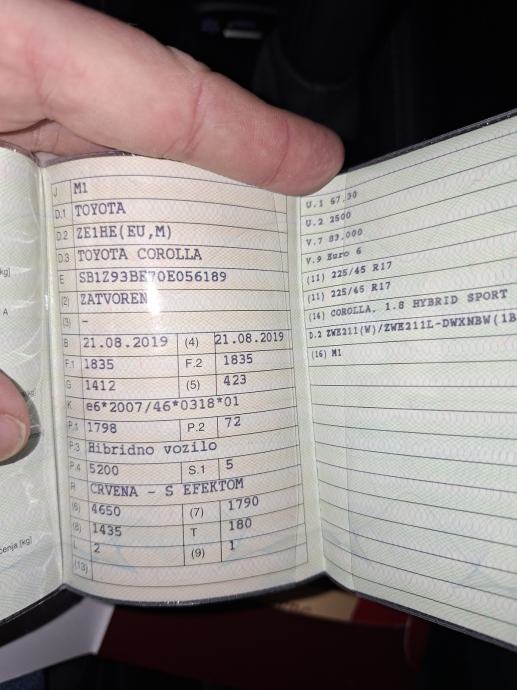 kg]
A
čenja [kg]
J M1
D.1 TOYOTA
D.2 ZE1HE(EU,M)
D.3 TOYOTA COROLLA
E SB1Z93BE70E056189
(2) ZATVOREN
(3) –
B 21.08.2019 (4) 21.08.2019
F.1 1835 F.2 1835
G 1412 (5) 423
K e6*2007/46*0318*01
P.1 1798 P.2 72
P.3 Hibridno vozilo
P.4 5200 S.1 5
R CRVENA - S EFEKTOM
(6) 4650 (7) 1790
(8) 1435 T 180
L 2 (9) 1
(13)
U.1 67,30
U.2 2500
V.7 83,000
V.9 Euro 6
(11) 225/45 R17
(11) 225/45 R17
(16) COROLLA, 1.8 HYBRID SPORT
D.2 ZWE211(W)/ZWE211L-DWXNBW(1B
(16) M1